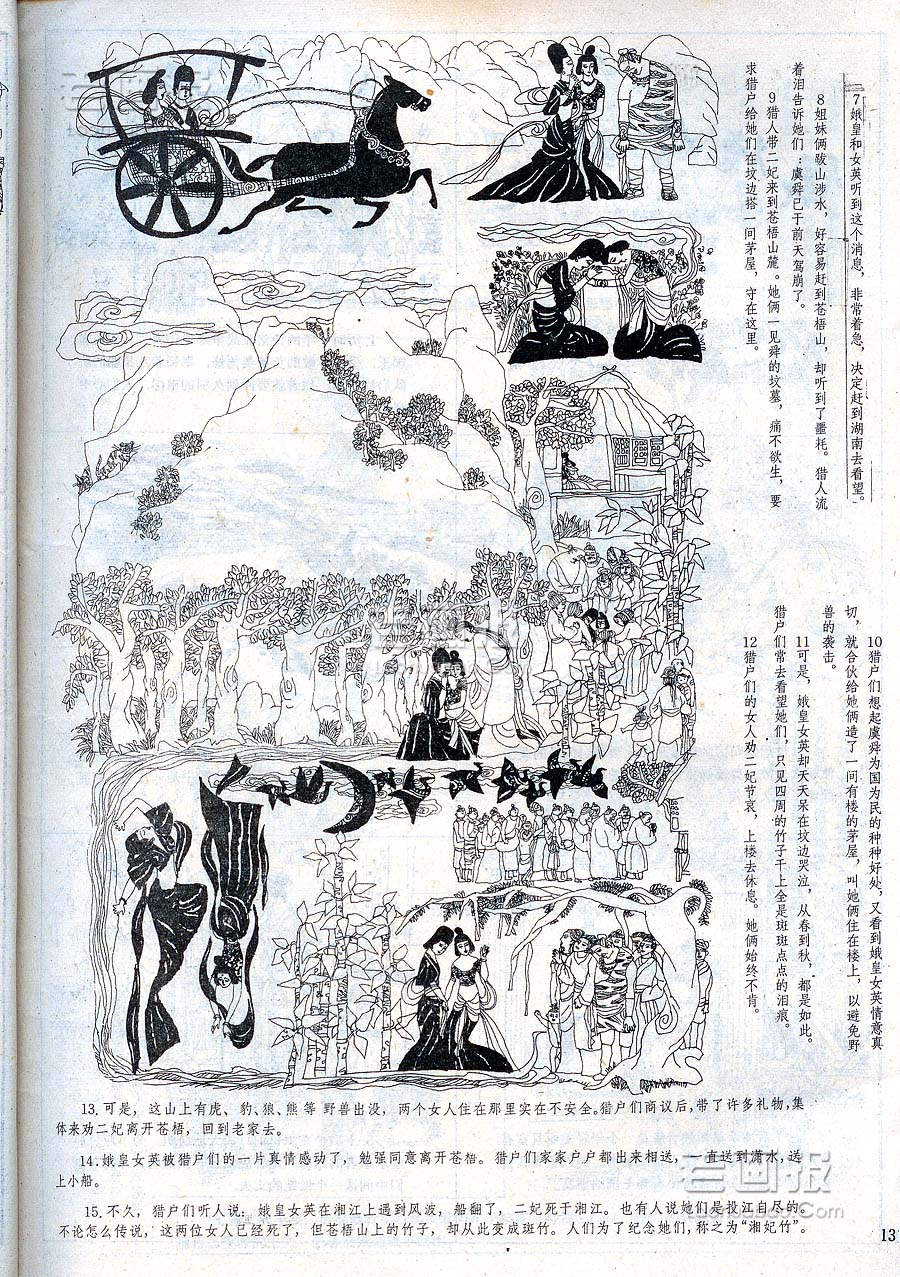 7 娥皇和女英听到这个消息，非常着急，决定赶到湖南去看望。
8 姐妹俩跋山涉水，好容易赶到苍梧山，却听到了噩耗。猎人流
着泪告诉她们：虞舜已于前天驾崩了。
9 猎人带二妃来到苍梧山麓。她俩一见舜的坟墓，痛不欲生，要
求猎户给她们在坟边搭一间茅屋，守在这里。
10 猎户们想起虞舜为国为民的种种好处，又看到娥皇女英情意真
切，就合伙给她俩造了一间有楼的茅屋，叫她俩住在楼上，以避免野
兽的袭击。
11 可是，娥皇女英却天天呆在坟边哭泣，从春到秋，都是如此。
猎户们常去看望她们，只见四周的竹子干上全是斑斑点点的泪痕。
12 猎户们的女人劝二妃节哀，上楼去休息。她俩始终不肯。
13.可是，这山上有虎、豹、狼、熊等野兽出没，两个女人住在那里实在不安全。猎户们商议后，带了许多礼物，集
体来劝二妃离开苍梧，回到老家去。
14.娥皇女英被猎户们的一片真情感动了，勉强同意离开苍梧。猎户们家家户户都出来相送，一直送到潇水，送
上小船。
15.不久，猎户们听人说：娥皇女英在湘江上遇到风波，船翻了，二妃死于湘江。也有人说她们是投江自尽的。
不论怎么传说，这两位女人已经死了，但苍梧山上的竹子，却从此变成斑竹。人们为了纪念她们，称之为“湘妃竹”。
13
老画报